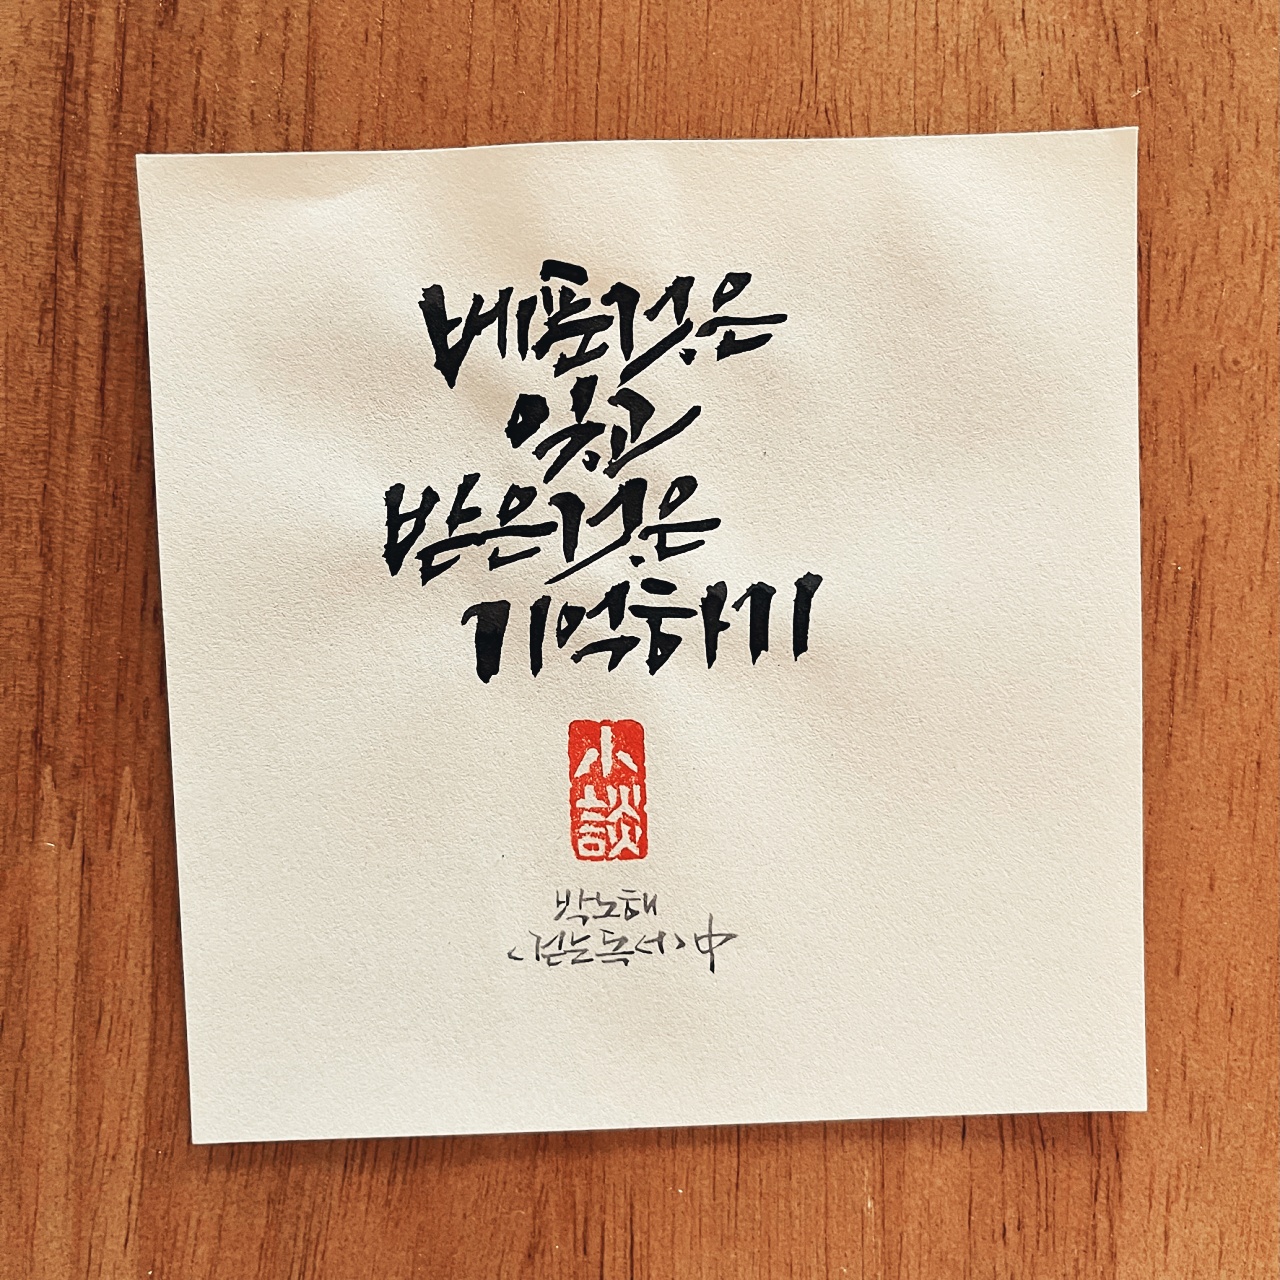 베푼것은
잊고
받은것은
기억하기
小
談
박노해
<걷는독서>中